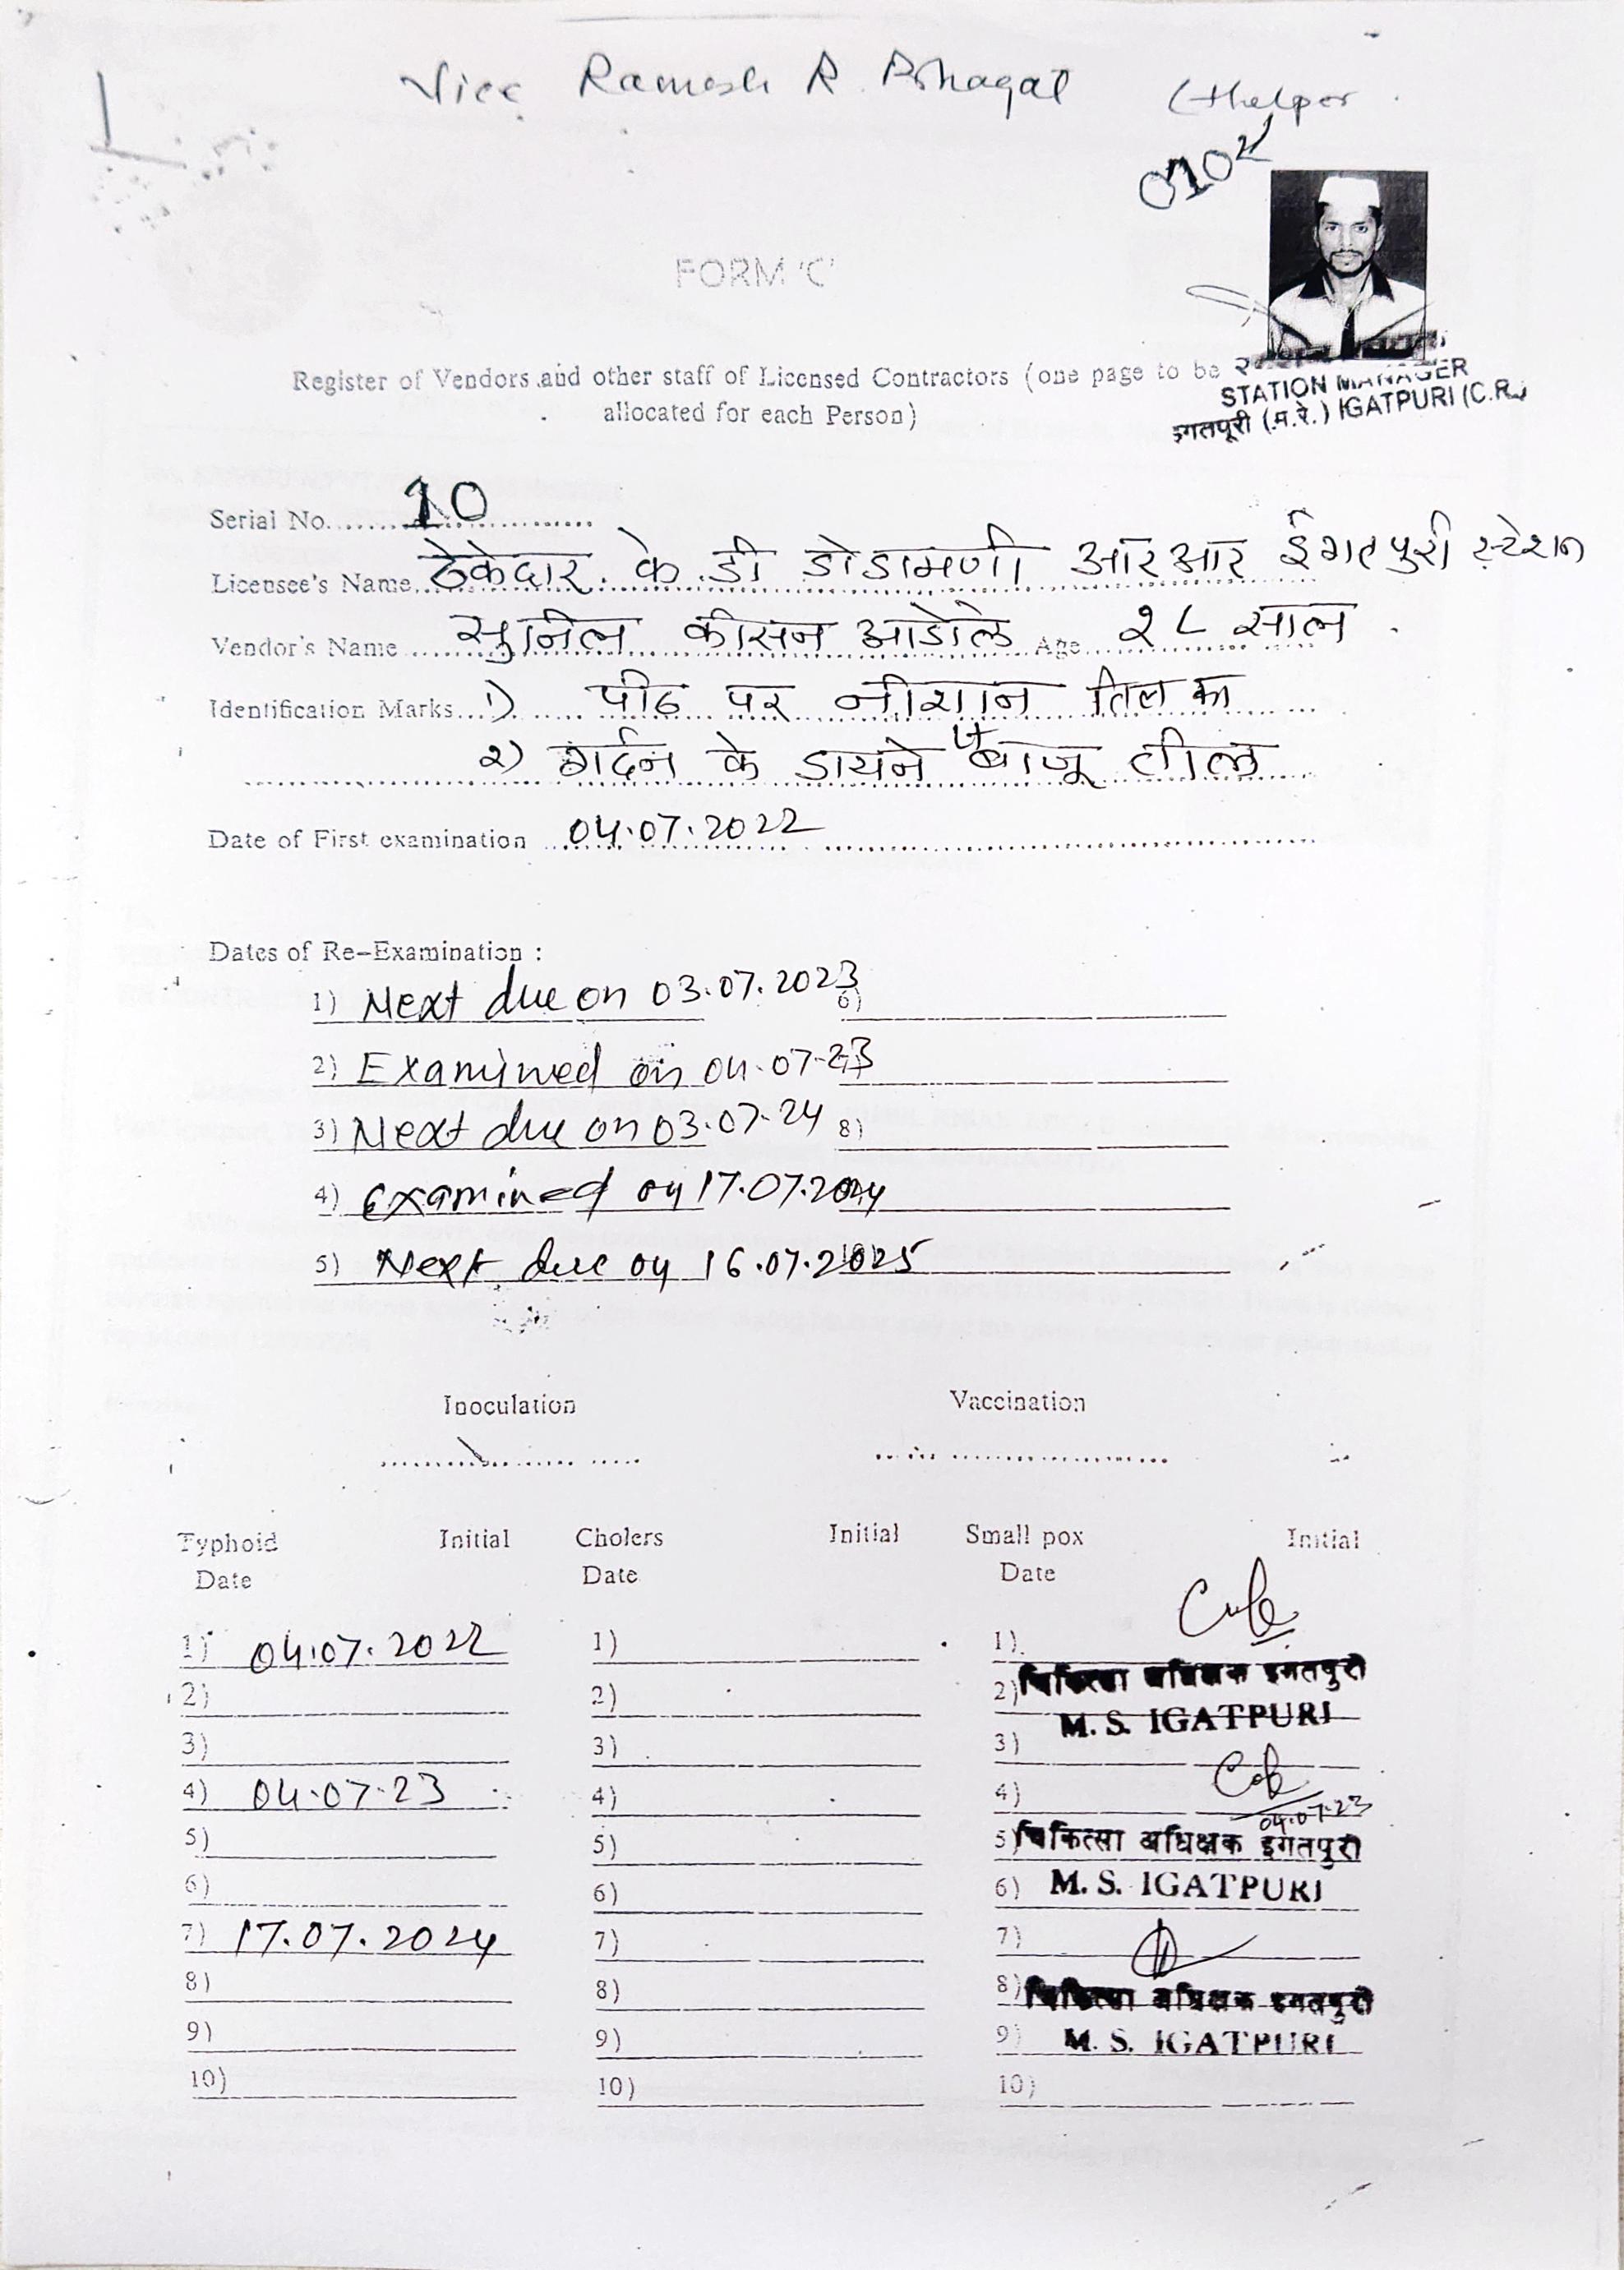 Vice Ramesh R. Bhagat (Helper
FORM 'C'
Register of Vendors and other staff of Licensed Contractors (one page to be
allocated for each Person)
STATION MANAGER
इगतपूरी (म.रे.) IGATPURI (C.R.)
Serial No. 10
Licensee's Name ठेकेदार के डी डोडामणी आरआर ईगतपुरी स्टेशन
Vendor's Name सुनिल कीसन आडोले Age २८ साल
Identification Marks १) पीठ पर नीशान तिल का
२) गर्दन के डायने बाजू तील
Date of First examination 04.07.2022
Dates of Re-Examination :
1) Next due on 03.07.2023 6)
2) Examined on 04.07.23
3) Next due on 03.07.24 8)
4) Examined on 17.07.2024
5) Next due on 16.07.2025
Inoculation Vaccination
Typhoid Initial Cholers Initial Small pox Initial
Date Date Date
1) 04.07.2022 1) 1)
चिकित्सा अधिक्षक इगतपुरी
2) 2) 2)
M. S. IGATPURI
3) 3) 3)
4) 04.07.23 4) 4)
04.07.23
5) 5) 5) चिकित्सा अधिक्षक इगतपुरी
6) 6) 6) M. S. IGATPURI
7) 17.07.2024 7) 7)
8) 8) 8) चिकित्सा अधिक्षक इगतपुरी
9) 9) 9) M. S. IGATPURI
10) 10) 10)